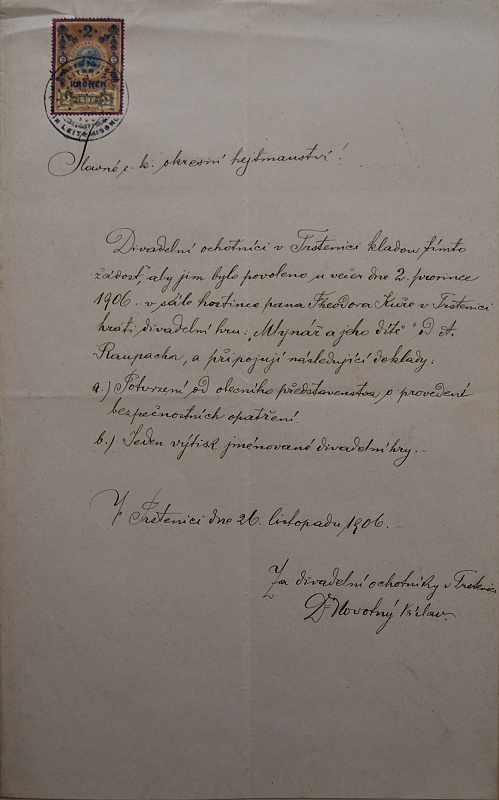 2
KRONEN
1898
Slavné c. k. okresní hejtmanství!
Divadelní ochotníci v Trstenici kladou tímto
žádost, aby jim bylo povoleno u večer dne 2. prosince
1906. v sále hostince pana Theodora Kuře v Trstenici
hráti divadelní hru: „Mlynář a jeho dítě" Od A.
Raupacha, a připojují následující doklady:
a.) Potvrzení od obecního představenstva o provedení
bezpečnostních opatření.
b.) Jeden výtisk jmenované divadelní hry.
V Trstenici dne 26. listopadu 1906.
Za divadelní ochotníky v Trstenici
Dr Novotný